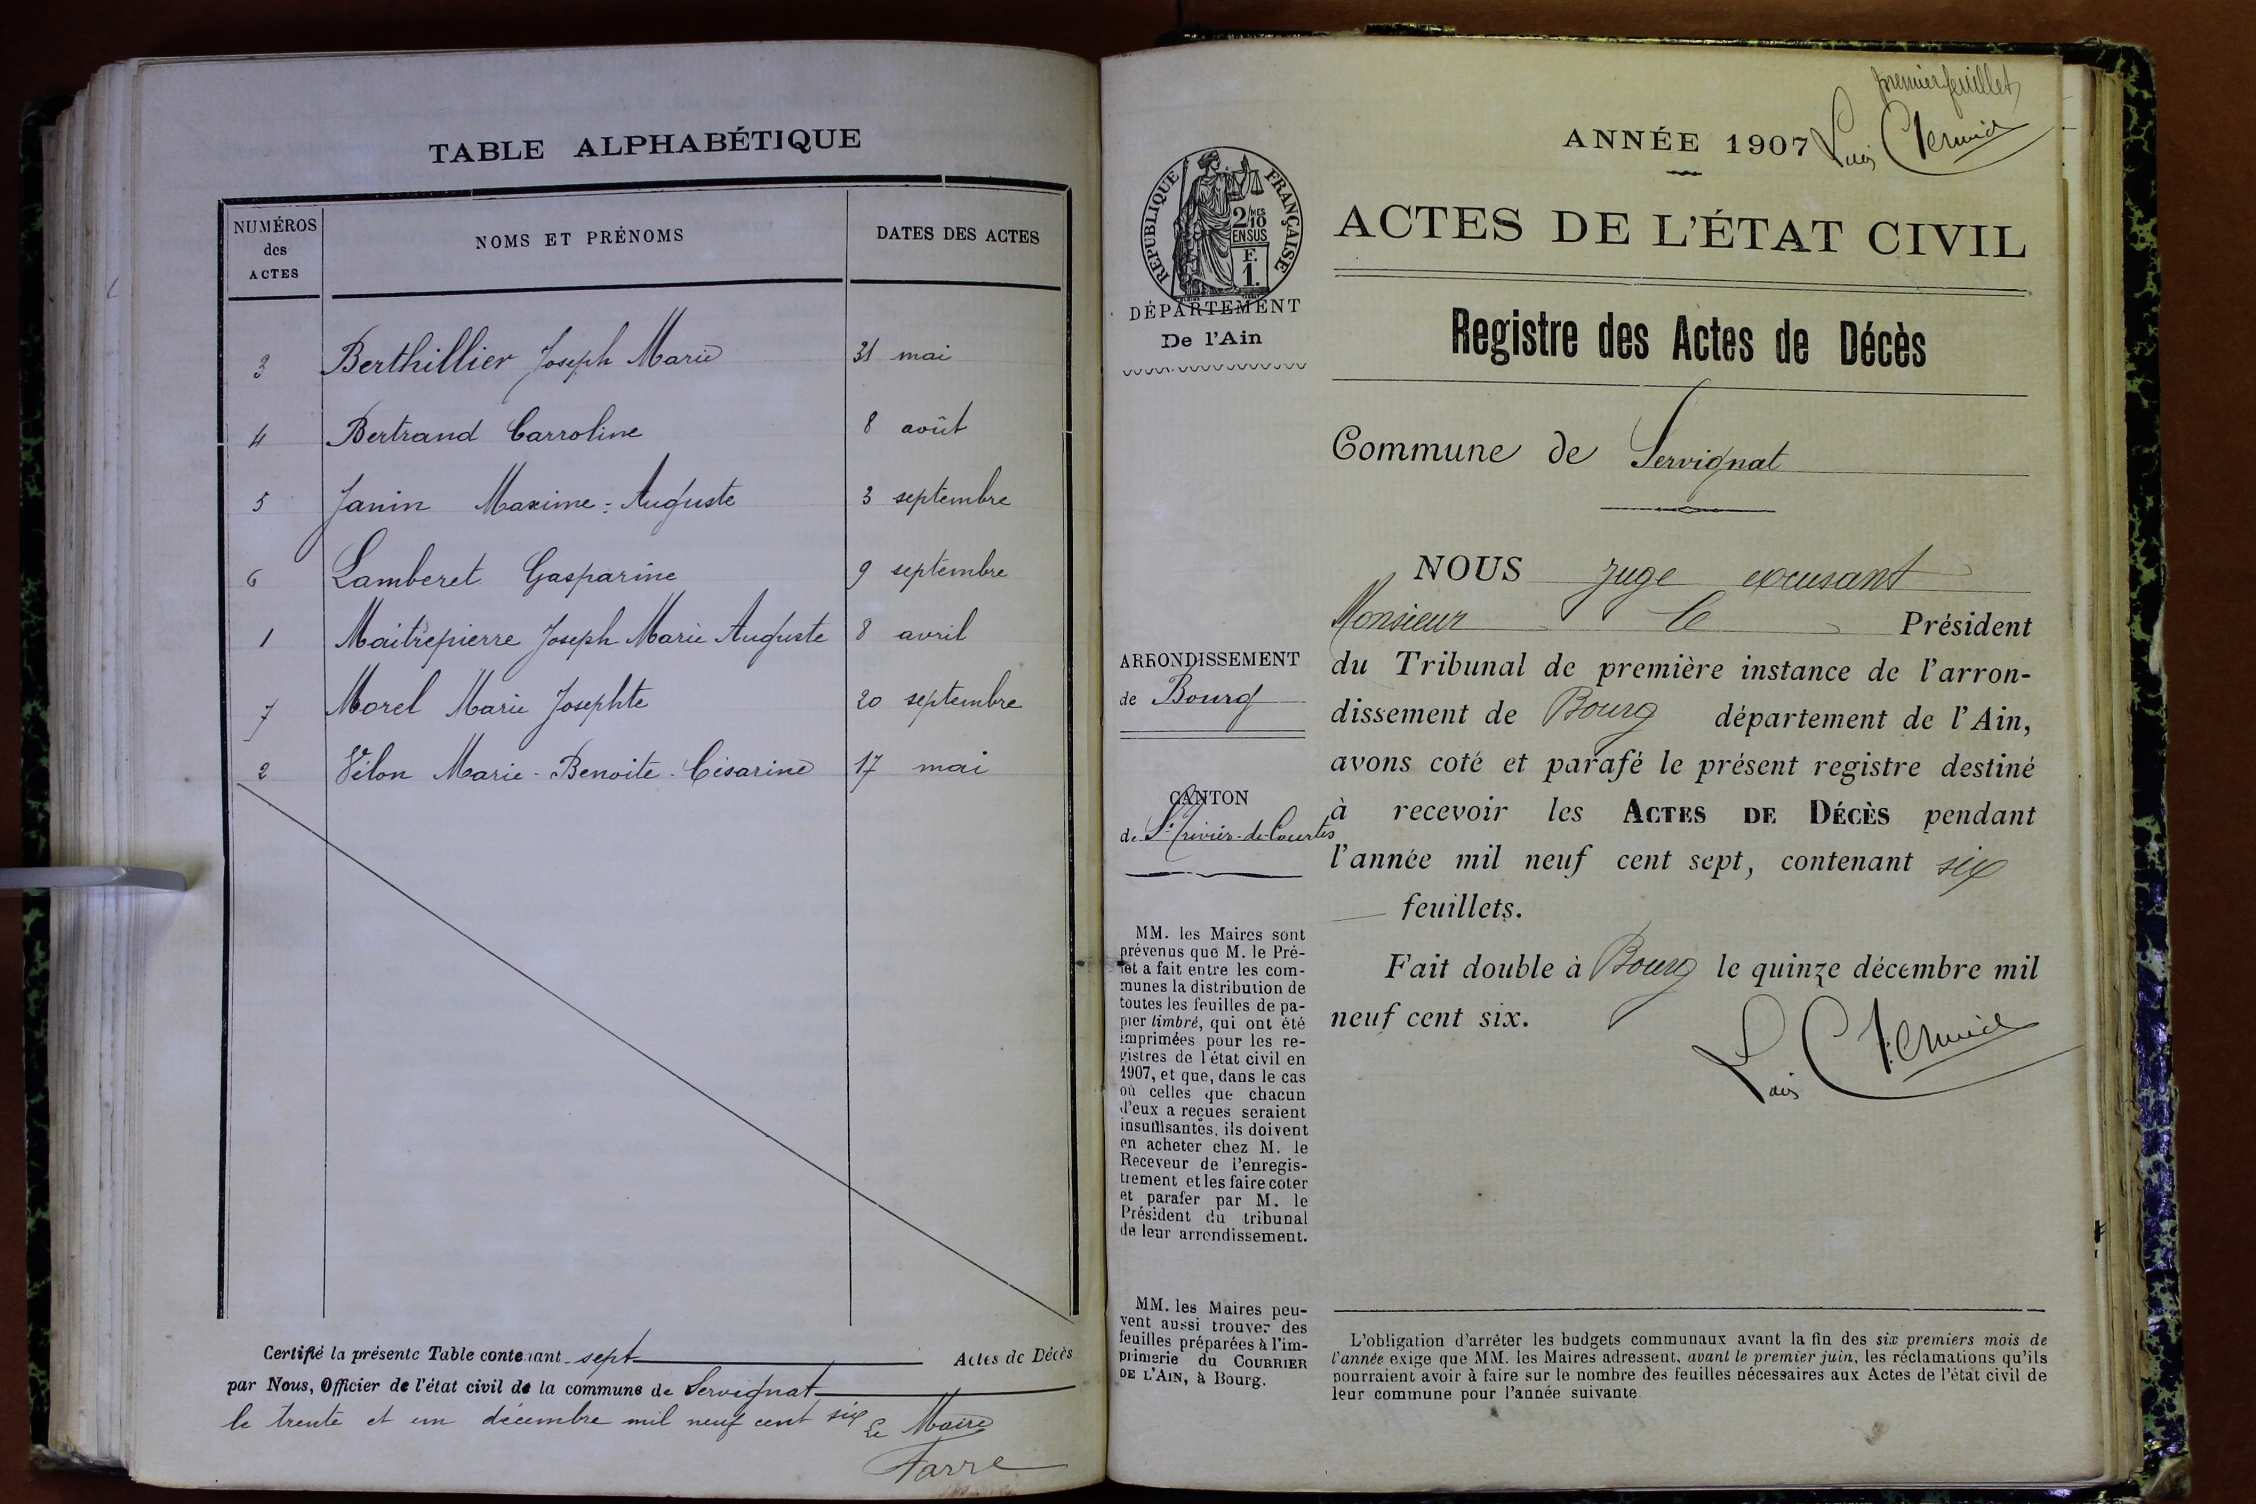 TABLE ALPHABÉTIQUE
NUMÉROS
des
ACTES
NOMS ET PRÉNOMS
DATES DES ACTES
3 Berthillier Joseph Marie 31 mai
4 Bertrand Carroline 8 août
5 Janin Maxime-Auguste 3 septembre
6 Lamberet Gasparine 9 septembre
1 Maitrepierre Joseph Marie Auguste 8 avril
7 Morel Marie Josephte 20 septembre
2 Vélon Marie-Benoite-Césarine 17 mai
Certifié la présente Table contenant sept Actes de Décès
par Nous, Officier de l'état civil de la commune de Servignat
le trente et un décembre mil neuf cent six
Le Maire
Farre
premier feuillet
ANNÉE 1907
RÉPUBLIQUE FRANÇAISE
2/10 MES
EN SUS
F.
1.
ACTES DE L'ÉTAT CIVIL
DÉPARTEMENT
De l'Ain
Registre des Actes de Décès
Commune de Servignat
ARRONDISSEMENT
de Bourg
CANTON
de St Trivier-de-Courtes
MM. les Maires sont
prévenus que M. le Pré-
fet a fait entre les com-
munes la distribution de
toutes les feuilles de pa-
pier timbré, qui ont été
imprimées pour les re-
gistres de l'état civil en
1907, et que, dans le cas
où celles que chacun
d'eux a reçues seraient
insuffisantes, ils doivent
en acheter chez M. le
Receveur de l'enregis-
trement et les faire coter
et parafer par M. le
Président du tribunal
de leur arrondissement.
MM. les Maires peu-
vent aussi trouver des
feuilles préparées à l'im-
primerie du COURRIER
DE L'AIN, à Bourg.
NOUS juge excusant
Monsieur le Président
du Tribunal de première instance de l'arron-
dissement de Bourg département de l'Ain,
avons coté et parafé le présent registre destiné
à recevoir les ACTES DE DÉCÈS pendant
l'année mil neuf cent sept, contenant six
feuillets.
Fait double à Bourg le quinze décembre mil
neuf cent six.
L'obligation d'arrêter les budgets communaux avant la fin des six premiers mois de
l'année exige que MM. les Maires adressent, avant le premier juin, les réclamations qu'ils
pourraient avoir à faire sur le nombre des feuilles nécessaires aux Actes de l'état civil de
leur commune pour l'année suivante.